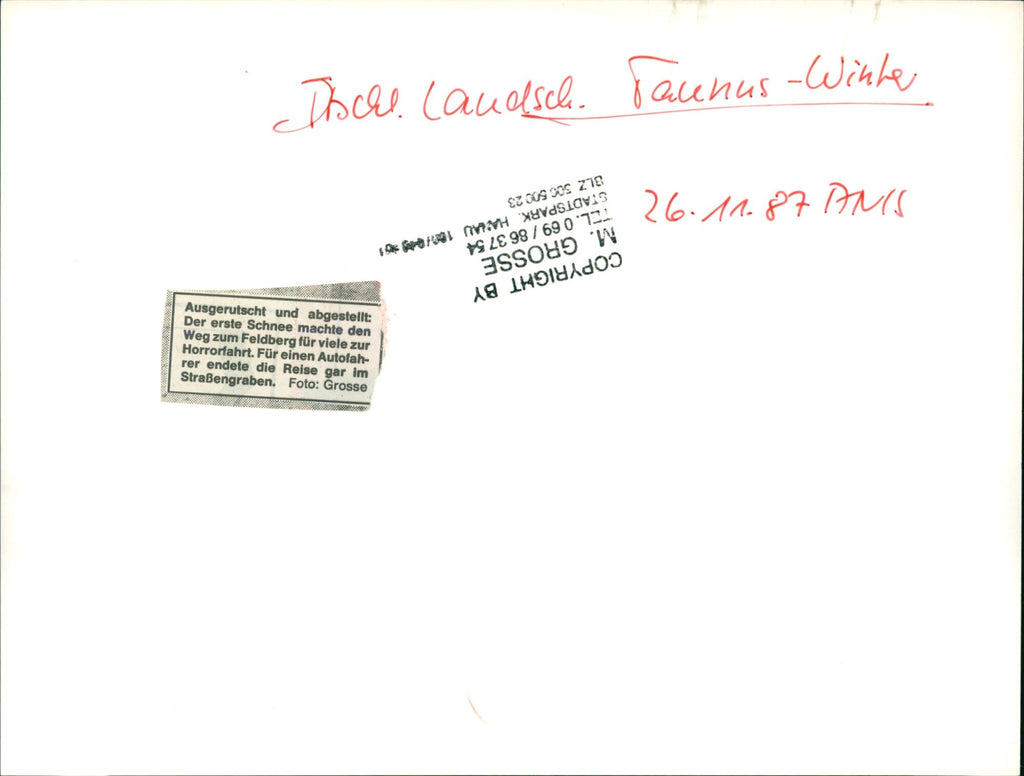 Dtschl. Landsch. Taunus-Winter
26.11.87 ANIS
COPYRIGHT BY
M. GROSSE
TEL. 0 69 / 86 37 54
STADTSPARK. HANAU
BLZ 506 500 23
Ausgerutscht und abgestellt:
Der erste Schnee machte den
Weg zum Feldberg für viele zur
Horrorfahrt. Für einen Autofah-
rer endete die Reise gar im
Straßengraben. Foto: Grosse